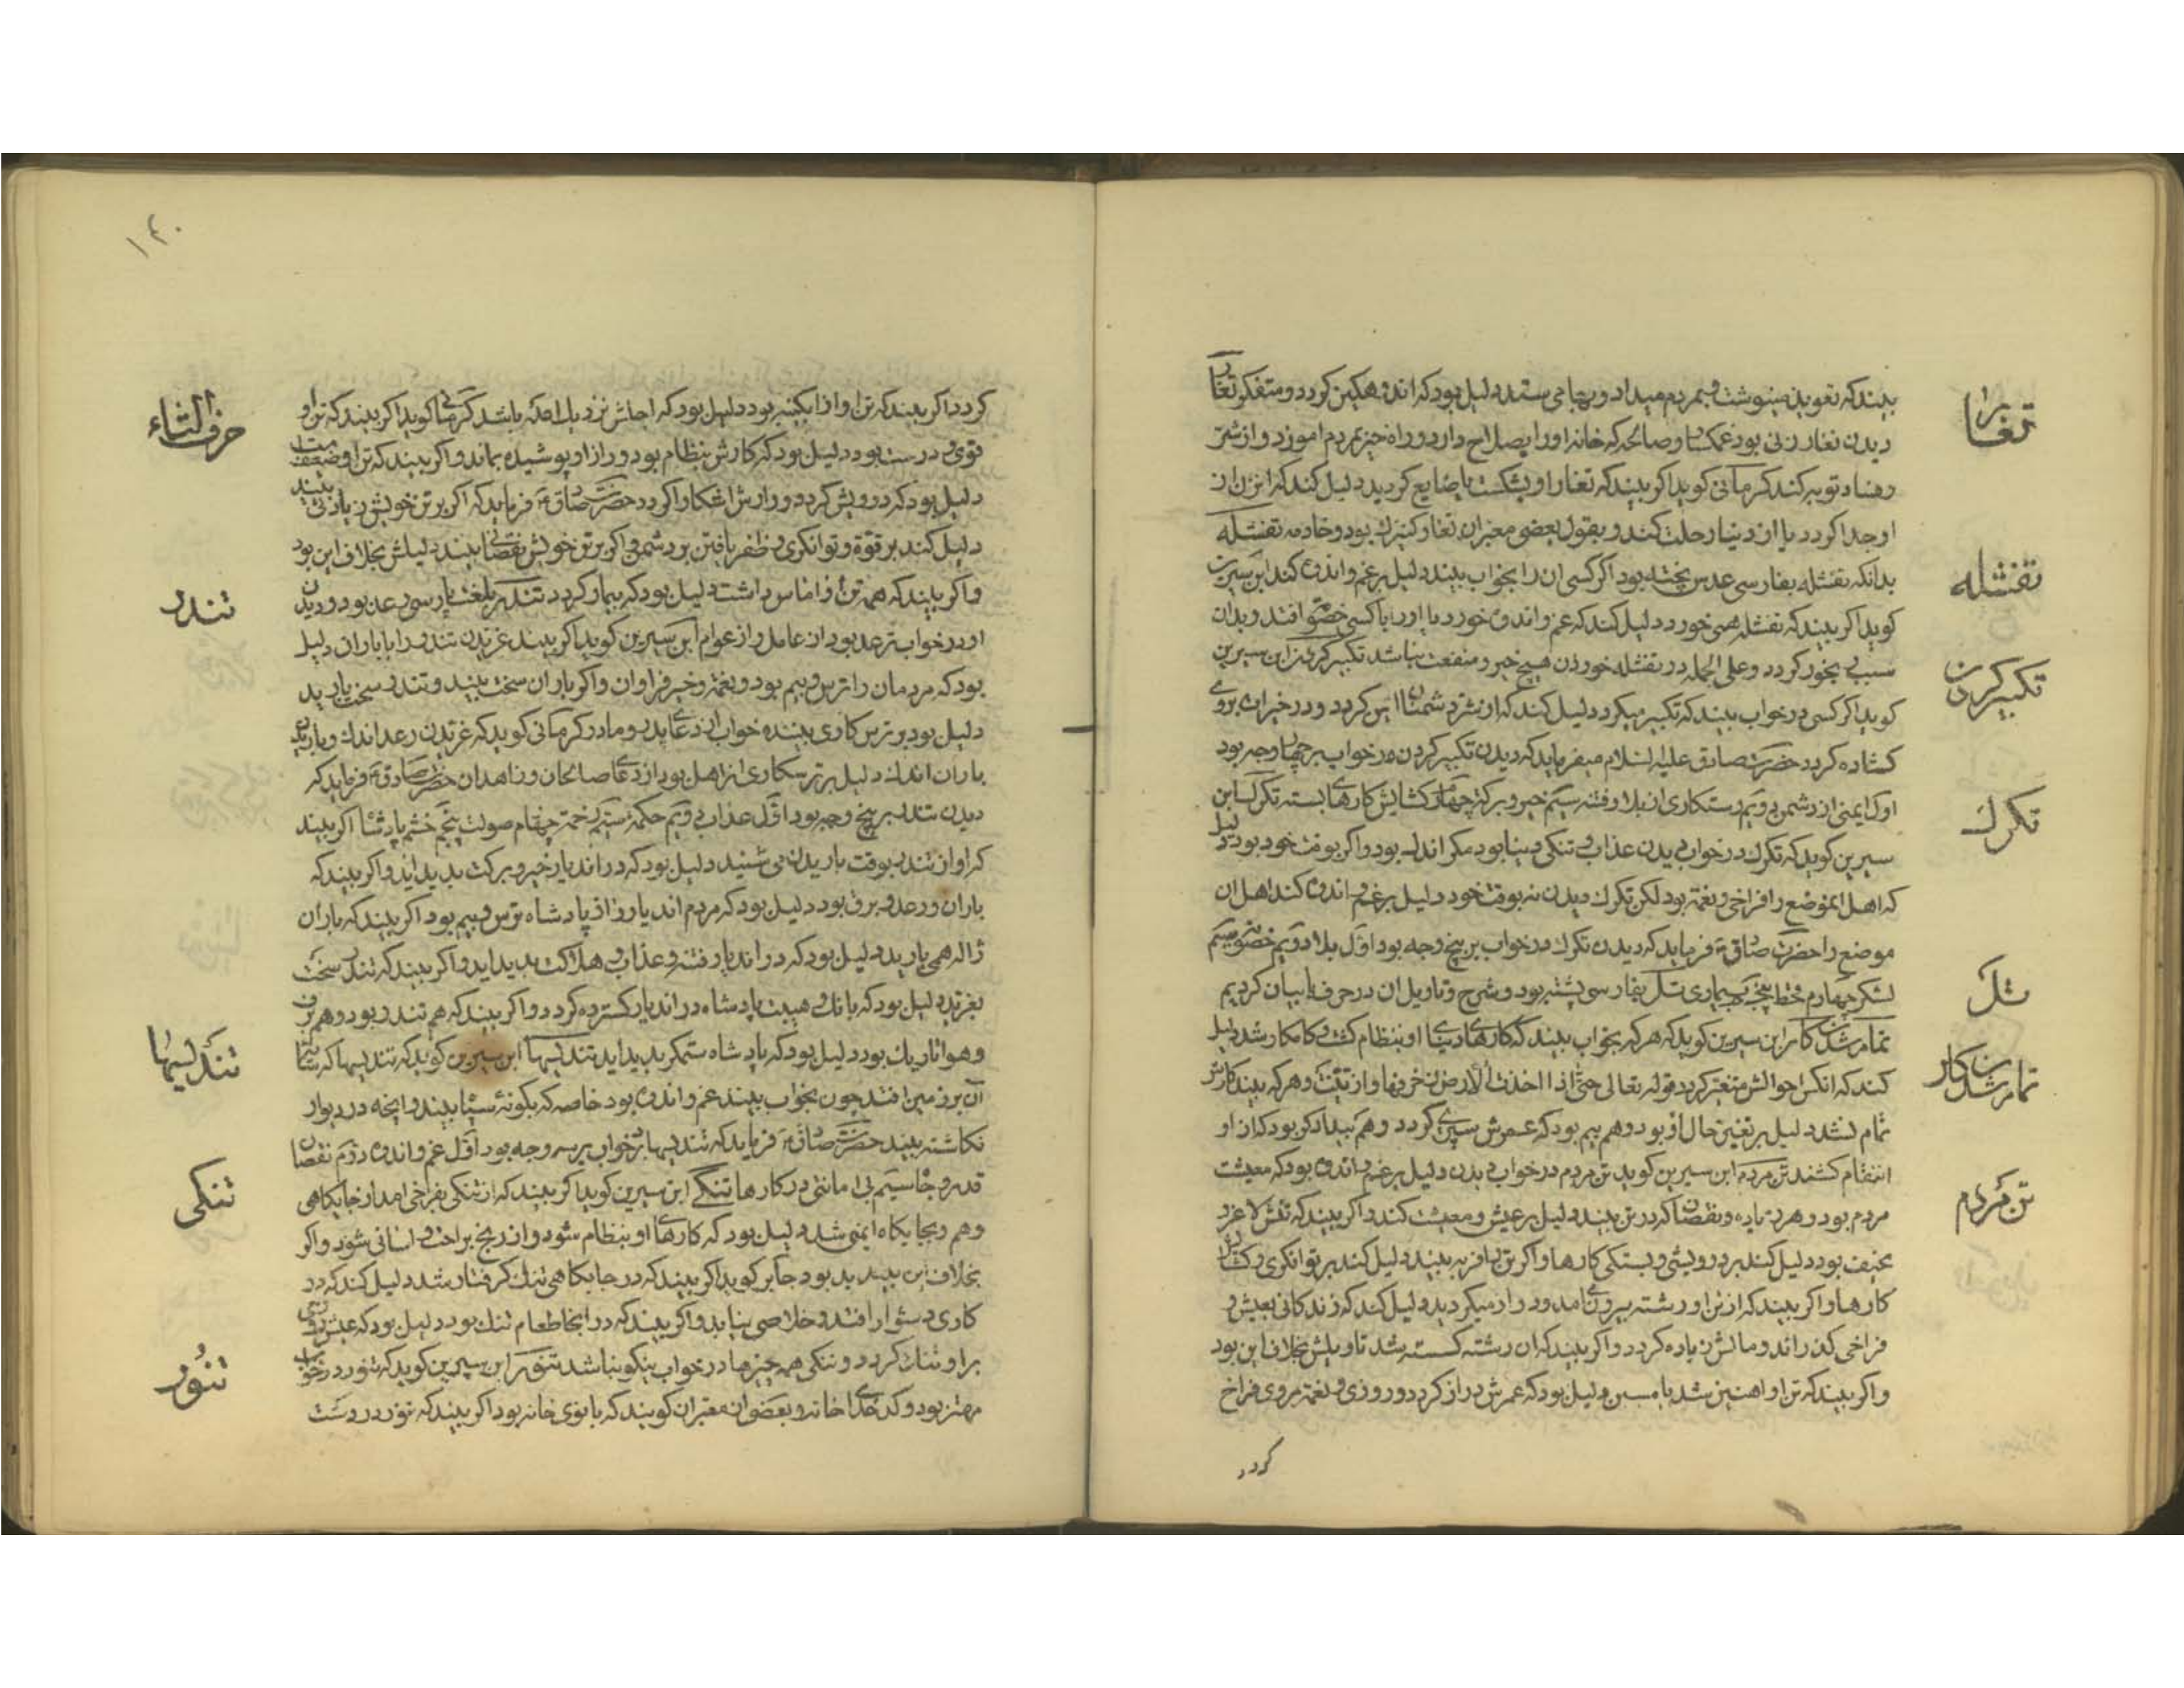 بیند که تعوید مینوشت و بمردم میداد و بها می‌ستد دلیل بود که اندوهکین کردد و متفکر تغار
تغار را
دیدن تغار زنی بود غمکسار و صالحه که خانه او را بصلاح دارد و راه خیر بمردم اموزد و از شر
و فساد توبه کند کرمانی کوید اکر بیند که تغار او بشکست یا ضایع کردید دلیل کند که از زن
او جدا کردد یا از دنیا رحلت کند و بقول بعضی معبران تغار کنیزک بود و خادمه تفشله
تفشله
بدانکه تفشله بفارسی عدس پخته بود اکر کسی ان را بخواب بیند دلیل بر غم و اندوه کند ابن سیرین
کوید اکر بیند که تفشله همی خورد دلیل کند که غم و اندوه خورد یا او را با کسی خصومت افتد و بدان
سبب بخور کردد و علی الجمله در تفشله خوردن هیچ خیر و منفعت نباشد تکبیر کردن ابن سیرین
تکبیر کردن
کوید اکر کسی در خواب بیند که تکبیر میکرد دلیل کند که از شر دشمنان ایمن کردد و در خیر بر وی
کشاده کردد حضرت صادق علیه السلام میفرماید که دیدن تکبیر کردن در خواب بر چهار وجه بود
اول ایمنی از دشمن دویم رستکاری از بلا و فتنه سیم خیر و برکت چهارم کشایش کارهای بسته تکرک ابن
تکرک
سیرین کوید که تکرک در خواب دیدن عذاب و تنکی دنیا بود مکر اندک بود و اکر بوقت خود بود دلیل
که اهل انموضع را فراخی و نعمت بود لکن تکرک دیدن نه بوقت خود دلیل بر غم و اندوه کند اهل ان
موضع را حضرت صادق ع فرماید که دیدن تکرک در خواب بر پنج وجه بود اول بلا دویم خصومت سیم
لشکر چهارم قحط پنجم بیماری تل بفارسی پشته بود و شرح و تاویل ان در حرف با بیان کردیم
تل
تمام شدن کار ابن سیرین کوید که هر که بخواب بیند که کارهای دنیای او بنظام کشت و کامکار شد دلیل
تمام شدن کار
کند که انکس احوالش متغیر کردد قوله تعالی حتی اذا اخذت الارض زخرفها وازینت و هر که بیند کارش
تمام نشد دلیل بر تغییر حال او بود و هم بیم بود که عمرش سپری کردد و هم بیدادکر بود که از او
انتقام کشند تن مردم ابن سیرین کوید تن مردم در خواب دیدن دلیل بر غم و اندوه بود که معیشت
تن مردم
مردم بود و هر زیاده و نقصان که در تن بیند دلیل بر عیش و معیشت کند و اکر بیند که تنش لاغر و
نحیف بود دلیل کند بر درویشی و بستکی کارها و اکر تن را فربه بیند دلیل کند بر توانکری و کشایش
کارها و اکر بیند که از تن او رشته بیرون امد و دراز میکردید دلیل کند که زندکانی بعیش و
فراخی کذراند و مالش زیاده کردد و اکر بیند که ان رشته کسسته شد تاویلش بخلاف این بود
و اکر بیند که تن او اهنین شد یا مسین دلیل بود که عمرش دراز کردد و روزی و نعمت بر وی فراخ
کردد
۱۴۰
کردد اکر بیند که تن او از ابکینه بود دلیل بود که اجلش نزدیک امده باشد کرمانی کوید اکر بیند که تن او
حرف التاء
قوی و درست بود دلیل بود که کارش بنظام بود و راز او پوشیده بماند و اکر بیند که تن او ضعیف است
دلیل بود که درویش کردد و رازش اشکارا کردد حضرت صادق ع فرماید که اکر بر تن خویش زیادتی بیند
دلیل کند بر قوة و توانکری و ظفر یافتن بر دشمن و اکر بر تن خویش نقصانی بیند دلیلش بخلاف این بود
و اکر بیند که همه تن او اماس داشت دلیل بود که بیمار کردد تندر بلغت پارسی رعد بود و دیدن
تندر
او در خواب ترعد بود از عامل و از عوام ابن سیرین کوید اکر بیند غریدن تندر را با باران دلیل
بود که مردمان را ترس و بیم بود و نعمت و خیر فراوان و اکر باران سخت بیند و تندر سخت بارید
دلیل بود بر ترس کاری بیننده خواب از دعای پدر و مادر کرمانی کوید که غریدن رعد اندک و باریدن
باران اندک دلیل بر ترسکاری از اهل بود از دعای صالحان و زاهدان حضرت صادق ع فرماید که
دیدن تندر بر پنج وجه بود اول عذاب دویم حکمة سیم رحمت چهارم صولت پنجم خشم پادشاه اکر بیند
که اواز تندر بوقت باریدن می شنید دلیل بود که در اندیار خیر و برکت پدید اید و اکر بیند که
باران و رعد و برق بود دلیل بود که مردم اندیار را از پادشاه ترس و بیم بود اکر بیند که باران
ژاله همی بارید دلیل بود که در اندیار فتنه و عذاب و هلاکت پدید اید و اکر بیند که تندر سخت
بغرید دلیل بود که بانک و هیبت پادشاه در اندیار کسترده کردد و اکر بیند که هم تندر بود و هم برق
و هوا تاریک بود دلیل بود که پادشاه ستمکر پدید اید تندیسها ابن سیرین کوید که تندیسها که سایه
تندیسها
آن بر زمین افتد چون بخواب بیند غم و اندوه بود خاصه که بکونه سیاه بیند و انچه در دیوار
نکاشته بیند حضرت صادق ع فرماید که تندیسها در خواب بر سه وجه بود اول غم و اندوه دوم نقصان
قدر و جاه سیم بی امانتی در کارها تنکی ابن سیرین کوید اکر بیند که از تنکی بفراخی امد از جایکاهی
تنکی
وهم بجایکاه ایمنی شد دلیل بود که کارهای او بنظام شود و از رنج براحت و اسانی شود و اکر
بخلاف این بیند بد بود جابر کوید اکر بیند که در جایکاهی تنک کرفتار شد دلیل کند که در
کاری دشوار افتد و خلاصی نیابد و اکر بیند که در انجا طعام تنک بود دلیل بود که عیش و روزی
بر او تنک کردد و تنکی همه چیزها در خواب نیکو نباشد تنور ابن سیرین کوید که تنور در خواب
تنور
مهتر بود و کدخدای خانه و بعضی از معبران کویند که بانوی خانه بود اکر بیند که تنور درست